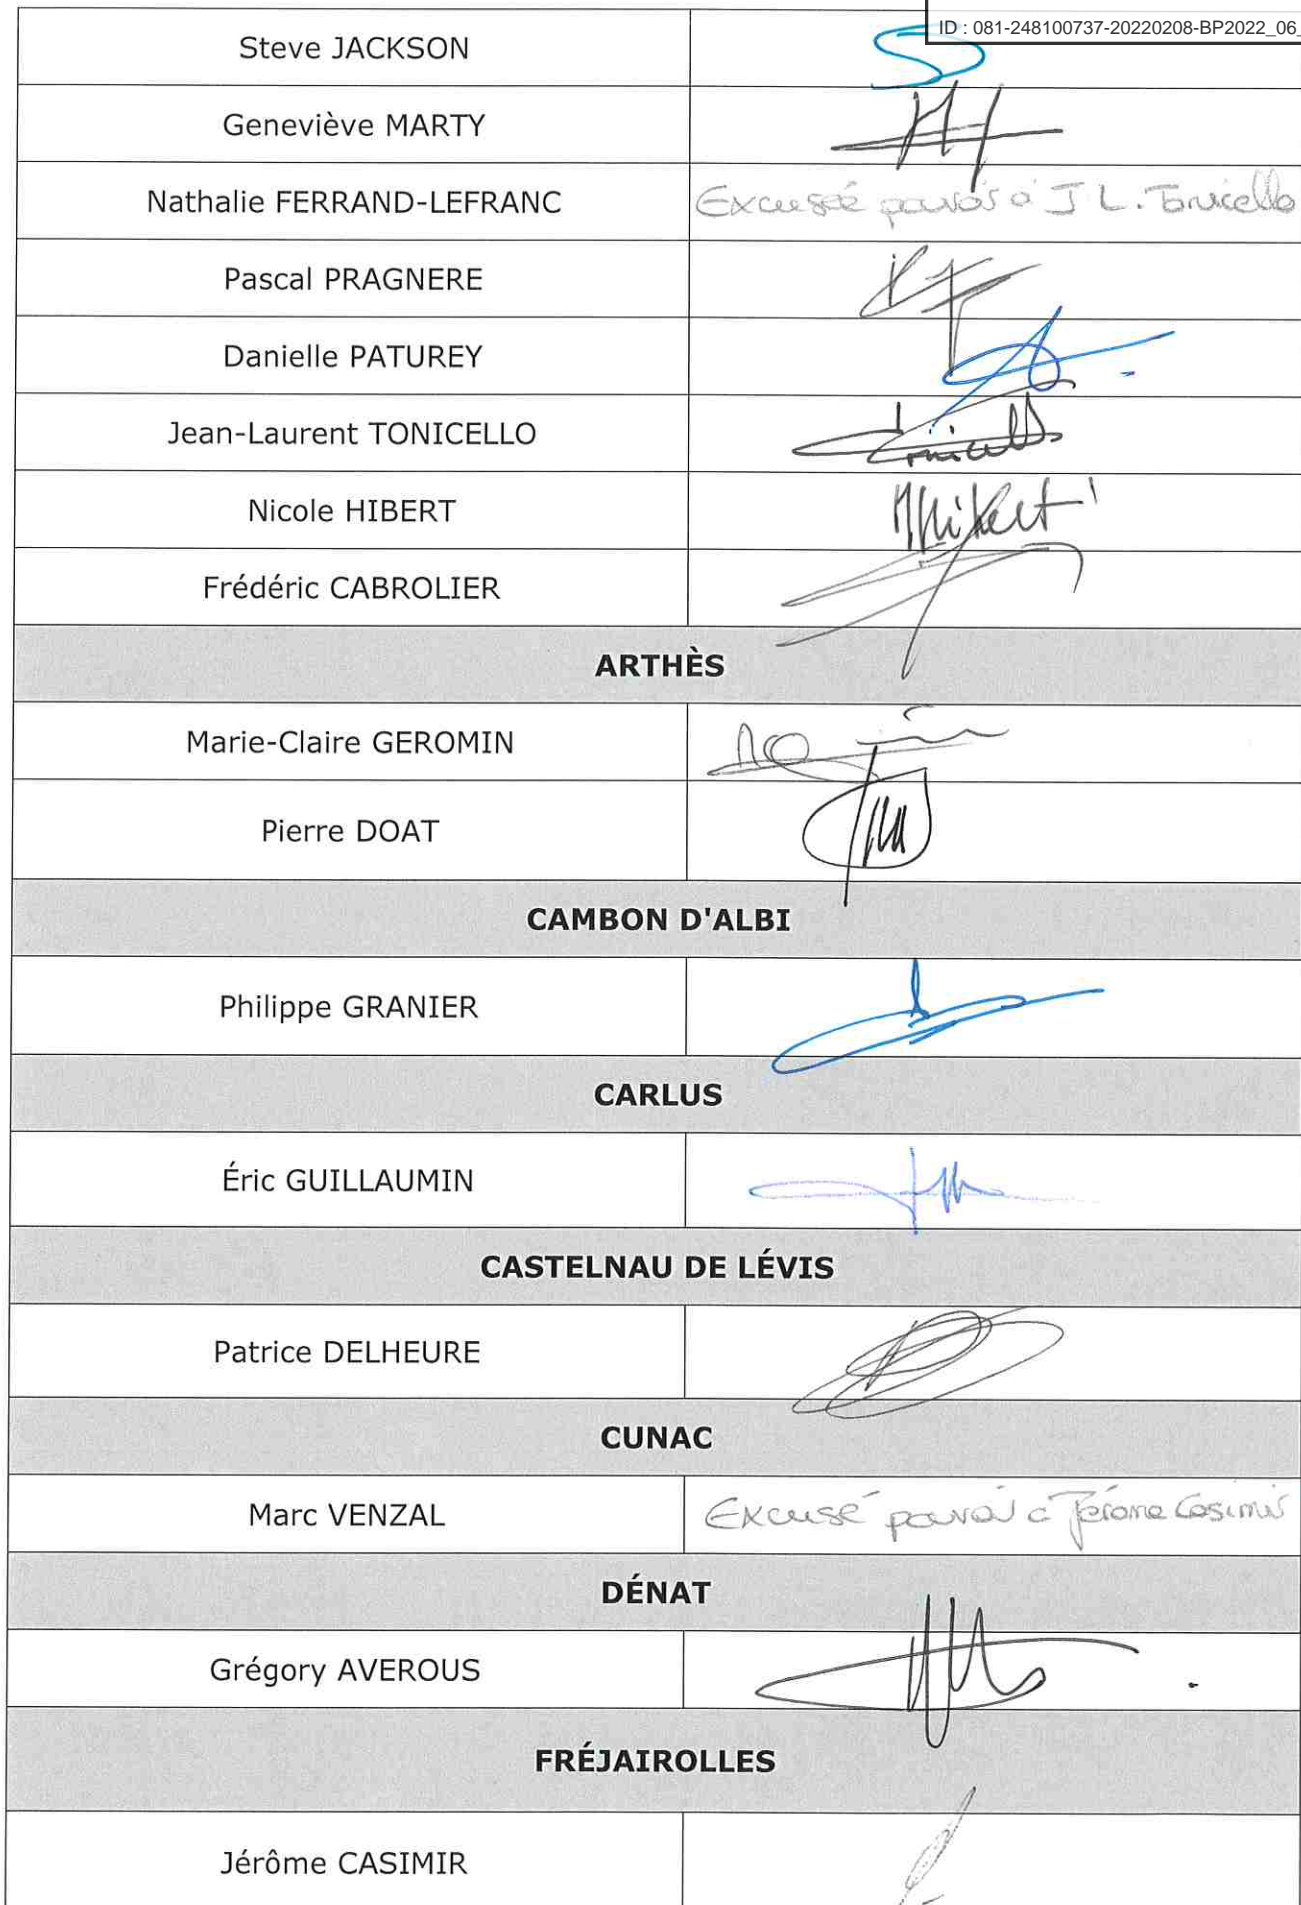 ID : 081-248100737-20220208-BP2022_06_
Steve JACKSON
Geneviève MARTY
Nathalie FERRAND-LEFRANC
Excusée pouvoir à J L. Tonicello
Pascal PRAGNERE
Danielle PATUREY
Jean-Laurent TONICELLO
Tonicello
Nicole HIBERT
NHibert
Frédéric CABROLIER
ARTHÈS
Marie-Claire GEROMIN
Pierre DOAT
CAMBON D'ALBI
Philippe GRANIER
CARLUS
Éric GUILLAUMIN
CASTELNAU DE LÉVIS
Patrice DELHEURE
CUNAC
Marc VENZAL
Excusé pouvoir à Jérôme Casimir
DÉNAT
Grégory AVEROUS
FRÉJAIROLLES
Jérôme CASIMIR